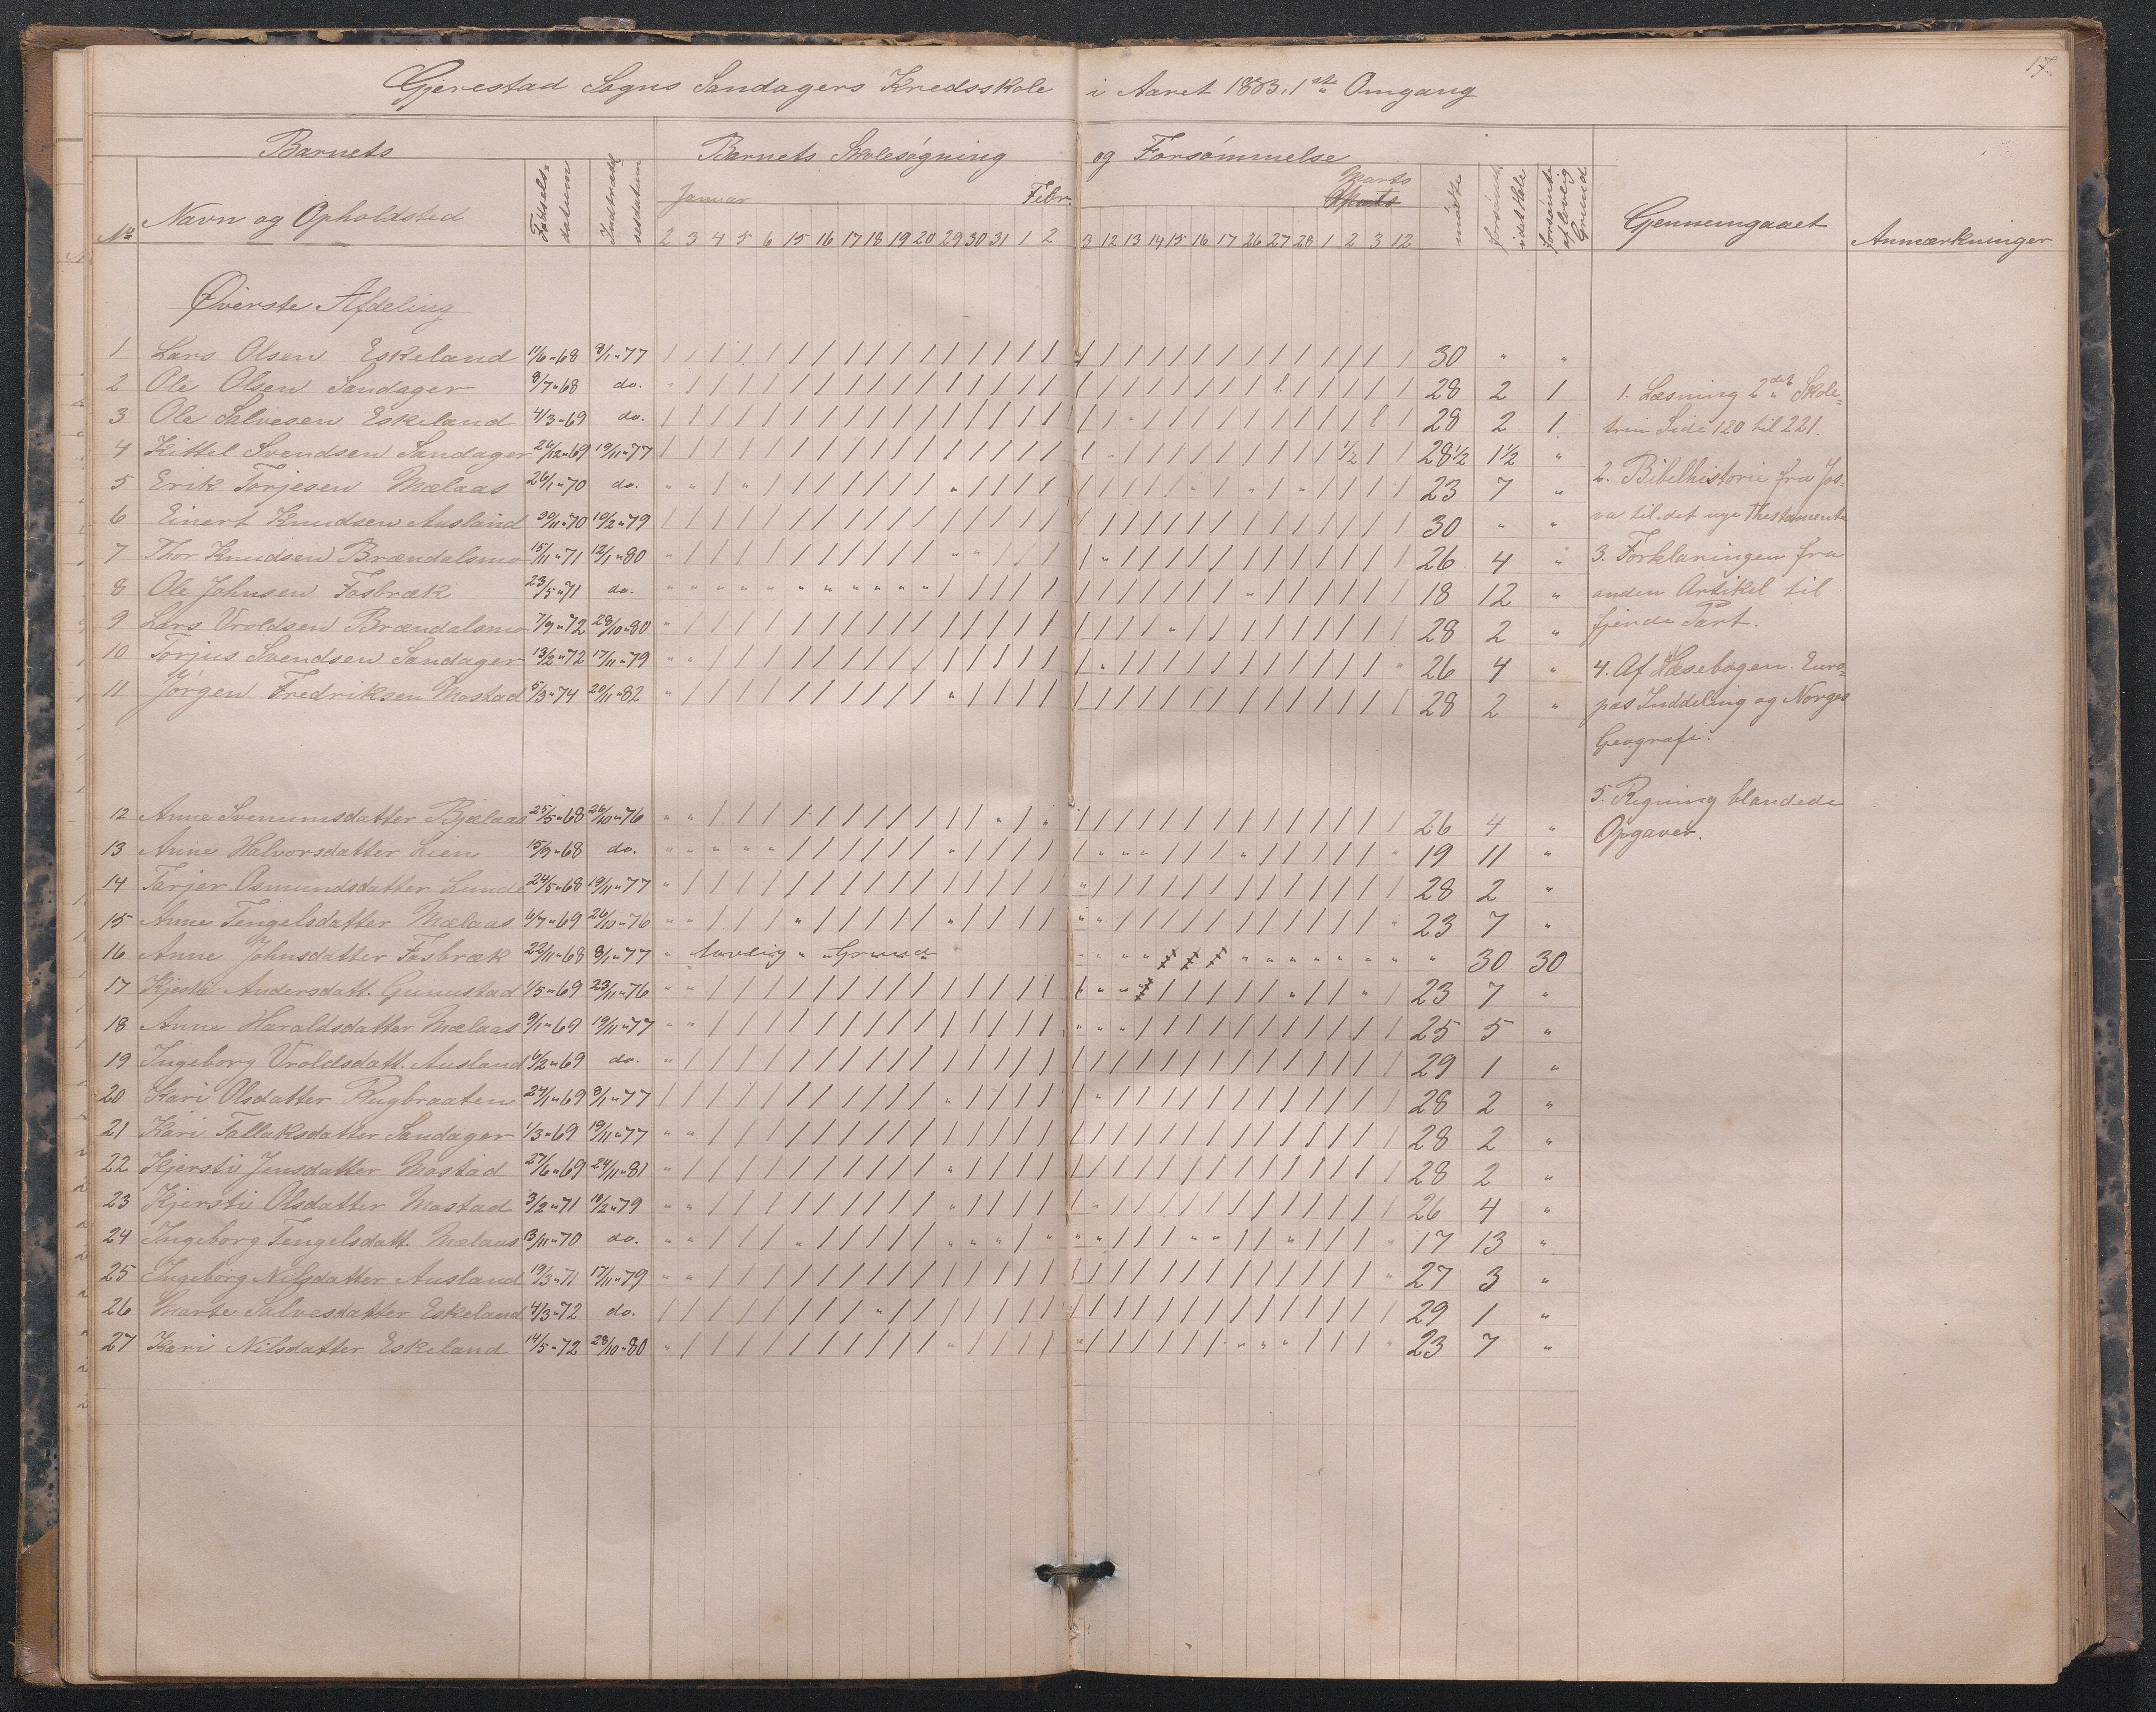 17.
Gjerestad Sogns Sandagers Kredsskole i Aaret 1883. 1ste Omgang
Barnets Barnets Skolesøgning og Forsømmelse
No Navn og Opholdsted Fødsels-datum Indtrædelsesdatum Januar Febr. Marts mødte forsømte idet Hele forsømte af lovlig Grund Gjennemgaaet Anmærkninger
2 3 4 5 6 15 16 17 18 19 20 29 30 31 1 2 3 12 13 14 15 16 17 26 27 28 1 2 3 12
Øverste Afdeling
1 Lars Olsen Eskeland 11/6 " 68 8/1 " 77 30 " "
2 Ole Olsen Sandager 8/7 " 68 do. 28 2 1
3 Ole Salvesen Eskeland 4/3 " 69 do. 28 2 1
4 Kittel Svendsen Sandager 26/12 " 69 19/11 " 77 28 1/2 1 1/2 "
5 Erik Torjesen Mælaas 26/1 " 70 do. 23 7 "
6 Einert Knudsen Ausland 30/11 " 70 10/2 " 79 30 " "
7 Thor Knudsen Brændalsmo 15/11 " 71 12/1 " 80 26 4 "
8 Ole Johnsen Fosbræk 23/5 " 71 do. 18 12 "
9 Lars Vroldsen Brændalsmo 7/9 " 72 28/10 " 80 28 2 "
10 Torjus Svendsen Sandager 13/2 " 72 17/11 " 79 26 4 "
11 Jørgen Fredriksen Mostad 5/3 " 74 20/11 " 82 28 2 "
12 Anne Svenumsdatter Bjælaas 25/5 " 68 26/10 " 76 26 4 "
13 Anne Halvorsdatter Lien 15/9 " 68 do. 19 11 "
14 Tarjer Osmundsdatter Lunde 24/5 " 68 19/11 " 77 28 2 "
15 Anne Tengelsdatter Mælaas 6/7 " 69 26/10 " 76 23 7 "
16 Anne Johnsdatter Fosbræk 22/11 " 68 8/1 " 77 " lovlig " " Grund " 30 30
17 Andersdatt. Gunustad 1/5 " 69 23/11 " 76 23 7 "
18 Anne Haraldsdatter Mælaas 9/1 " 69 19/11 " 77 25 5 "
19 Ingeborg Vroldsdatt. Ausland 6/2 " 69 do. 29 1 "
20 Kari Olsdatter Rugbraaten 24/1 " 69 8/1 " 77 28 2 "
21 Kari Tallaksdatter Sandager 1/3 " 69 19/11 " 77 28 2 "
22 Kjersti Jensdatter Mostad 27/6 " 69 24/11 " 81 28 2 "
23 Kjersti Olsdatter Mostad 3/2 " 71 10/2 " 79 26 4 "
24 Ingeborg Tengelsdatt. Mælaas 13/11 " 70 do. 17 13 "
25 Ingeborg Nilsdatter Ausland 19/3 " 71 17/11 " 79 27 3 "
26 Marte Salvesdatter Eskeland 4/3 " 72 do. 29 1 "
27 Kari Nilsdatter Eskeland 14/5 " 72 28/10 " 80 23 7 "
1. Læsning 2det Skole-
trin Side 120 til 221.
2. Bibelhistorie fra Jos-
va til det nye Thestamente
3. Forklaringen fra
anden Artikel til
fjerde Part.
4. Af Læsebogen. Euro-
pas Inddeling og Norges
Geografi.
5. Regning blandede
Opgaver.